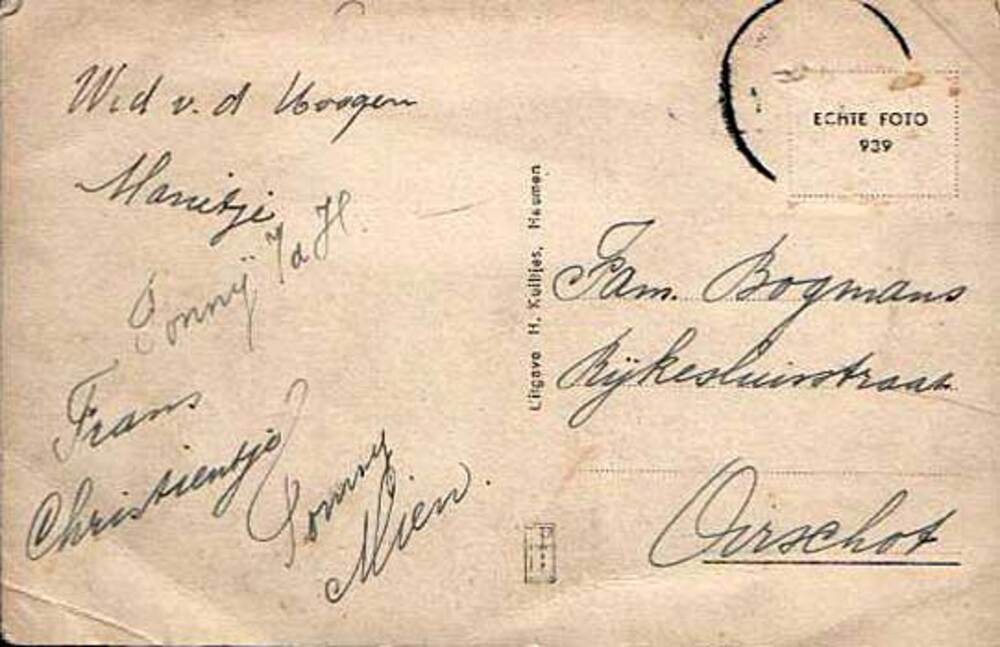 Wid v. d Hoogen
Marietje
Tonny v d H.
Frans
Christientje
Tonny
Mien.
Uitgave H. Kuijtjes, Heumen
ECHTE FOTO
939
Fam. Bogmans
Rijkesluisstraat
Oirschot